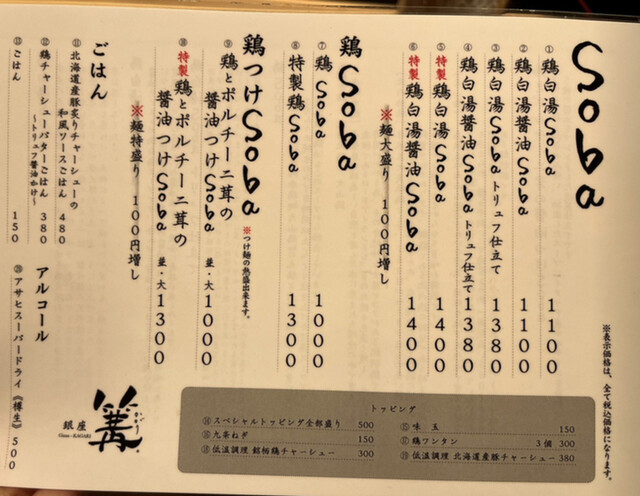 Soba
① 鶏白湯Soba 1100
② 鶏白湯醤油Soba 1100
③ 鶏白湯Soba トリュフ仕立て 1380
④ 鶏白湯醤油Soba トリュフ仕立て 1380
⑤ 特製 鶏白湯Soba 1400
⑥ 特製 鶏白湯醤油Soba 1400
※麺大盛り 100円増し
鶏Soba
⑦ 鶏Soba 1000
⑧ 特製鶏Soba 1300
鶏つけSoba ※つけ麺の熱盛出来ます。
⑨ 鶏とポルチーニ茸の
醤油つけSoba 並・大 1000
⑩ 特製 鶏とポルチーニ茸の
醤油つけSoba 並・大 1300
※麺特盛り 100円増し
ごはん
⑪ 北海道産豚炙りチャーシューの
和風ソースごはん 480
⑫ 鶏チャーシューバターごはん 380
〜トリュフ醤油かけ〜
⑬ ごはん 150
アルコール
⑳ アサヒスーパードライ《樽生》 500
※表示価格は、全て税込価格になります。
トッピング
⑭ スペシャルトッピング全部盛り 500
⑮ 味玉 150
⑯ 九条ねぎ 150
⑰ 鶏ワンタン 3個 300
⑱ 低温調理 銘柄鶏チャーシュー 300
⑲ 低温調理 北海道産豚チャーシュー 380
銀座
Ginza-KAGARI
篝
かがり